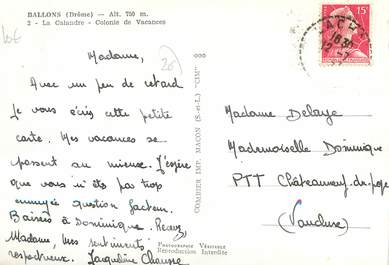 BALLONS (Drôme) — Alt. 750 m.
2 - La Calandre - Colonie de Vacances
Madame,
Avec un peu de retard
je vous écris cette petite
carte. Mes vacances se
passent au mieux. J'espère
que vous n'êts pas trop
ennuyée question facteur.
Baisers à Dominique. Recevez
Madame, mes sentiments
respectueux. Jacqueline Chausse
COMBIER IMP. MACON (S.-et-L.) "CIM"
PHOTOGRAPHIE VÉRITABLE
Reproduction Interdite
15F
18H30
Madame Delaye
Mademoiselle Dominique
PTT Châteauneuf-du-pape
(Vaucluse)